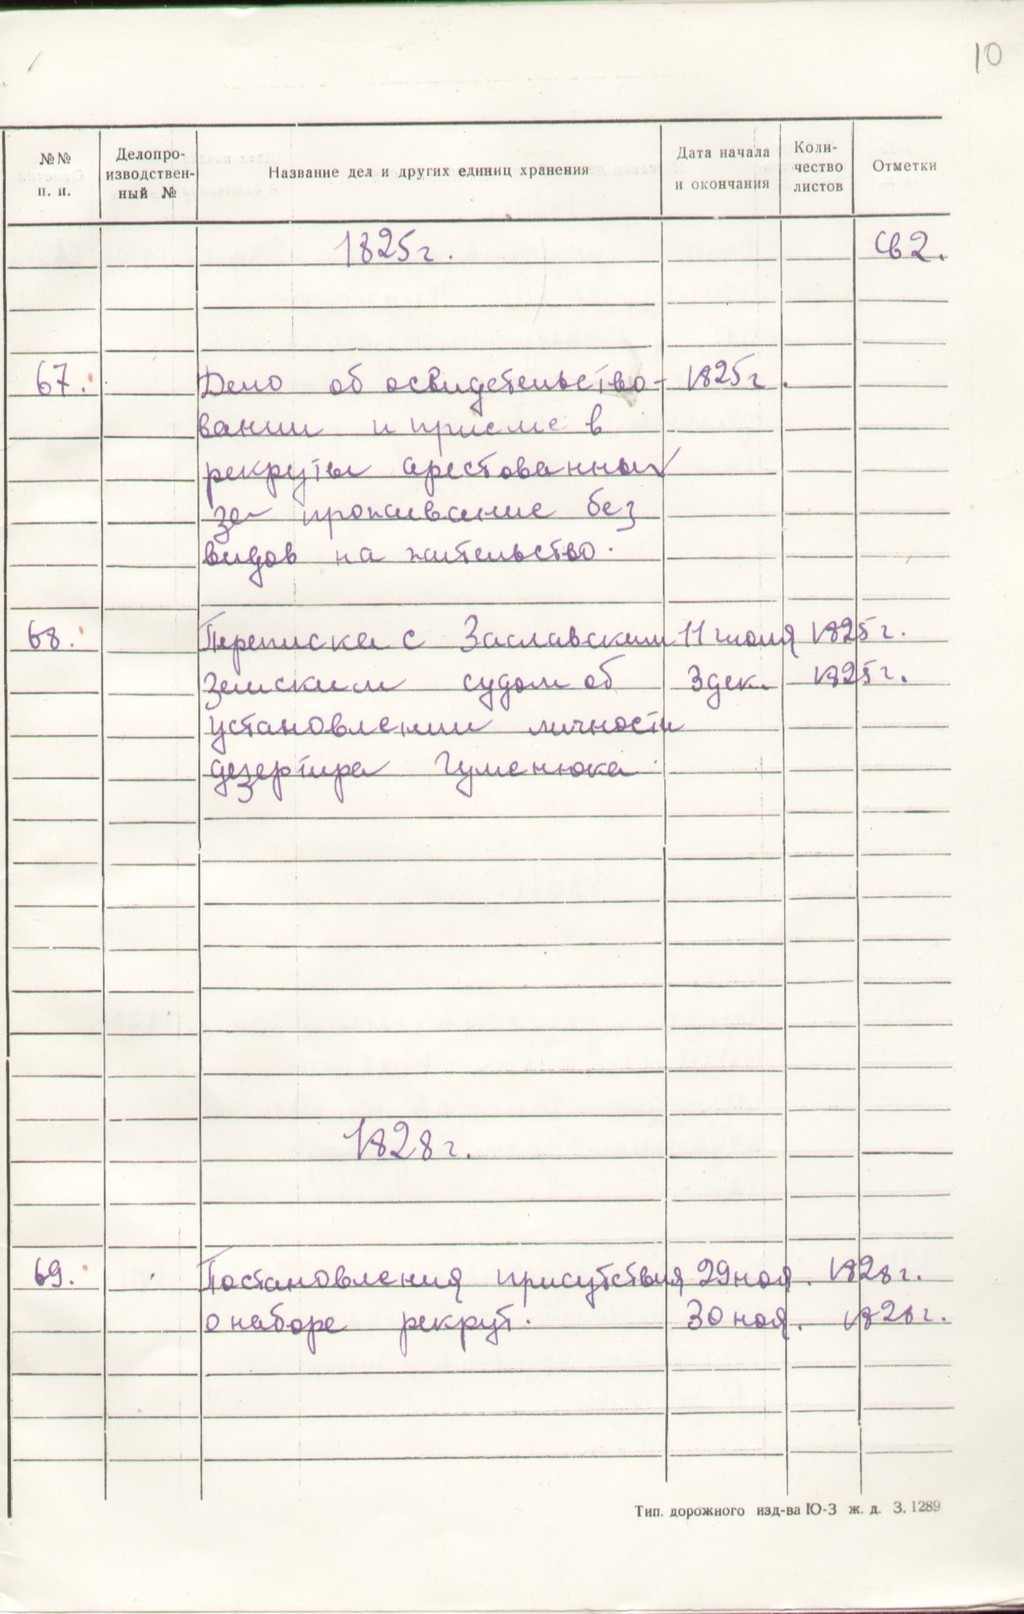 10
№№ п. п.
Делопро-
изводствен-
ный №
Название дел и других единиц хранения
Дата начала
и окончания
Коли-
чество
листов
Отметки
1825г. св 2.
67. Дело об освидетельство- 1825г.
вании и приеме в
рекруты арестованных
за проживание без
видов на жительство.
68. Переписка с Заславским 11 июля 1825г.
земским судом об 3 дек. 1825г.
установлении личности
дезертира Гуменюка
1828г.
69. Постановления присутствия 29 ноя. 1828г.
о наборе рекрут. 30 ноя. 1828г.
Тип. дорожного изд-ва Ю-З ж. д. З. 1289